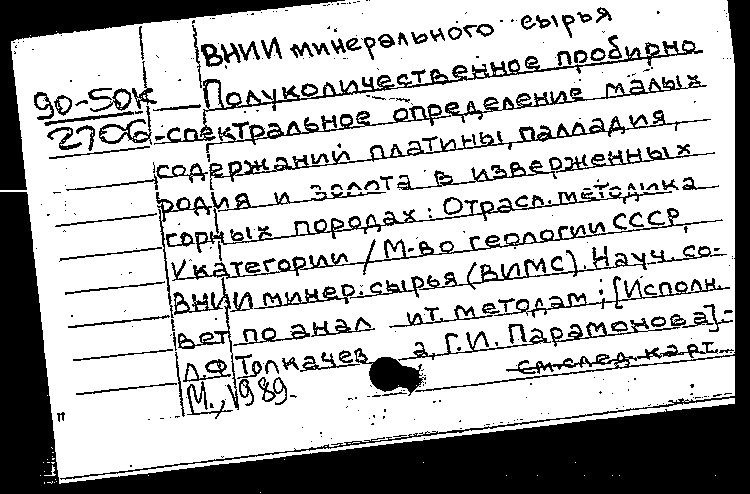 ВНИИ минерального сырья
90-50К Полуколичественное пробирно
2706 -спектральное определение малых
содержаний платины, палладия,
родия и золота в изверженных
горных породах: Отрасл. методика
V категории / М-во геологии СССР,
ВНИИ минер. сырья (ВИМС). Науч. со-
вет по анал ит. методам; [Исполн.
Л.Ф Толкачев а, Г.И. Парамонова].-
М., 1989.
см. след. карт.